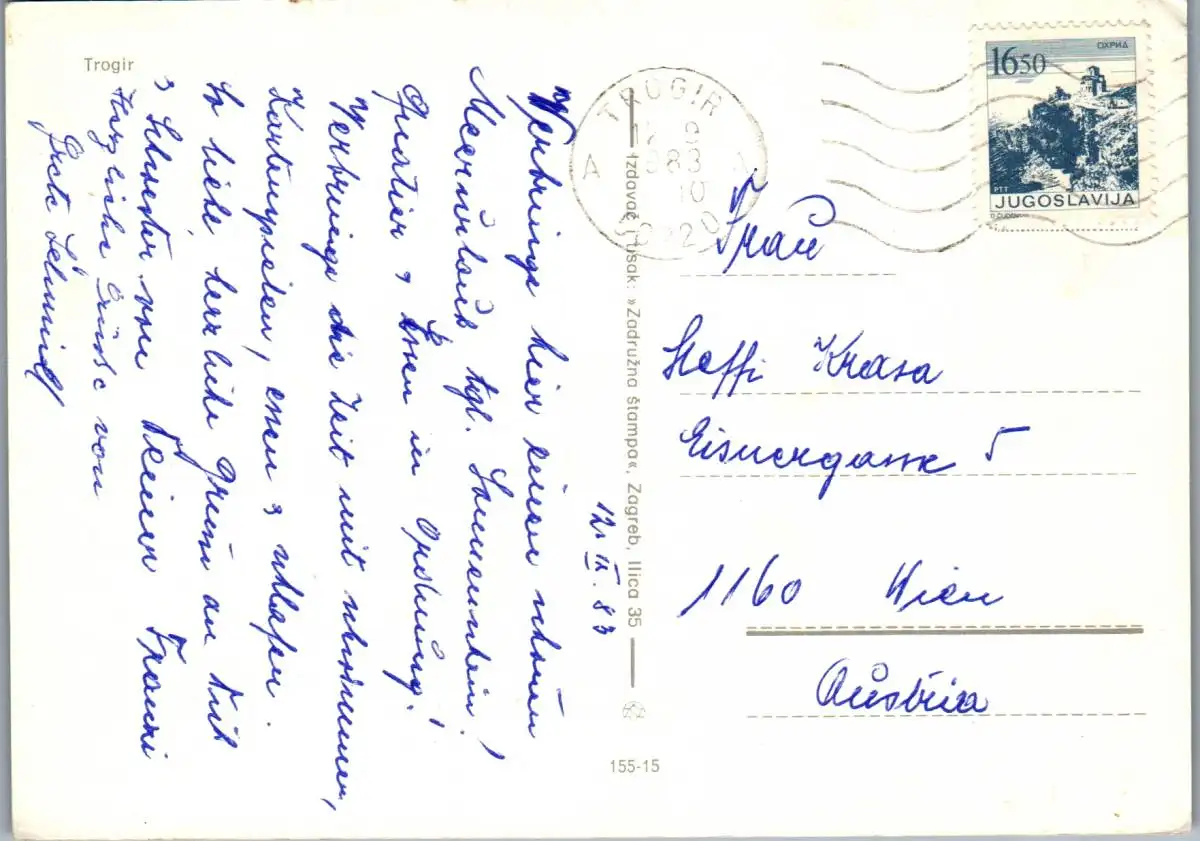 Trogir
12. IX. 83
Verbringe hier einen schönen
Meerurlaub tgl. Sonnenschein!
Quatier & Essen in Ordnung!
Verbringe die Zeit mit schwimmen,
Kartenspielen, essen & schlafen.
So liebe, herzliche Grüße an Dich
& Schwester von Deiner Franzi
Herzliche Grüße von
Grete Schmied
Izdavač i tisak: »Zadružna štampa«, Zagreb, Ilica 35
155-15
TROGIR
A A
1983
10
ОХРИД
1650
PTT
JUGOSLAVIJA
Frau
Steffi Krasa
Eisnergasse 5
1160 Wien
Austria